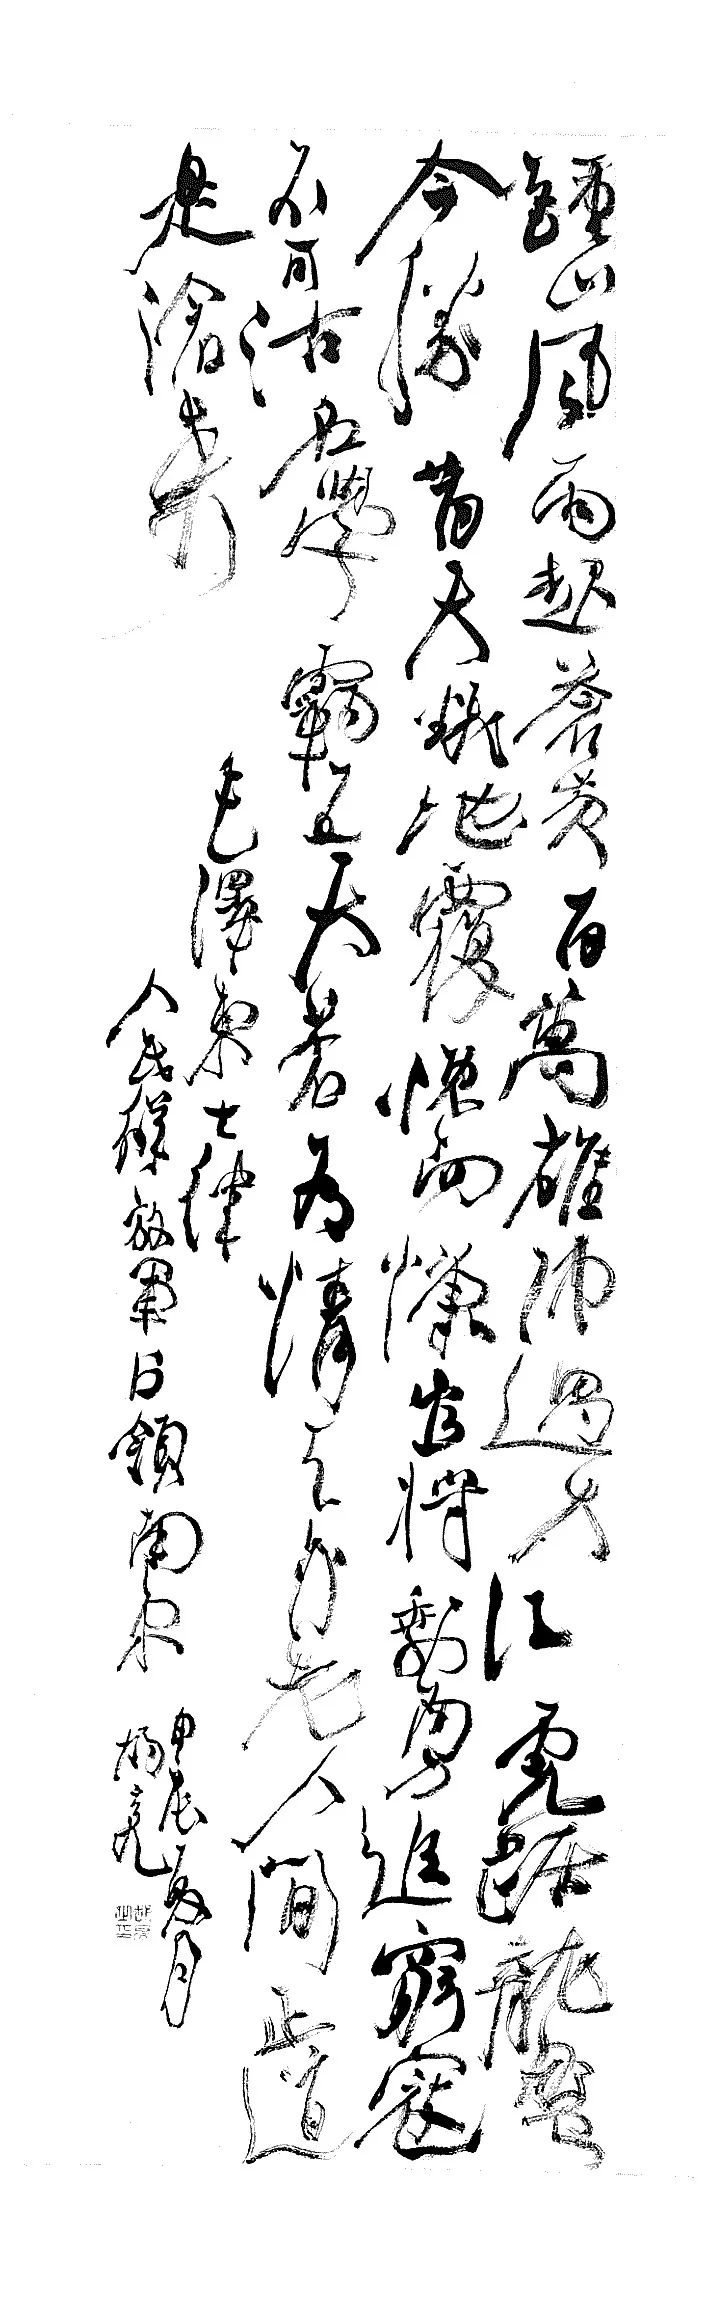 鍾山風雨起蒼黃百萬雄師過大江虎踞龍盤
今勝昔天翻地覆慨而慷宜將剩勇追窮寇
不可沽名學霸王天若有情天亦老人間正道
是滄桑
毛澤東七律
人民解放軍占領南京
甲辰夏月